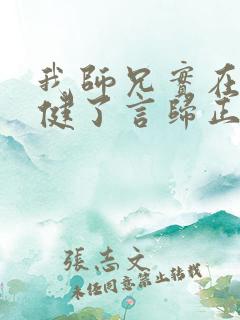 我師兄實在
健了言歸正
張志文
未經同意禁止轉載